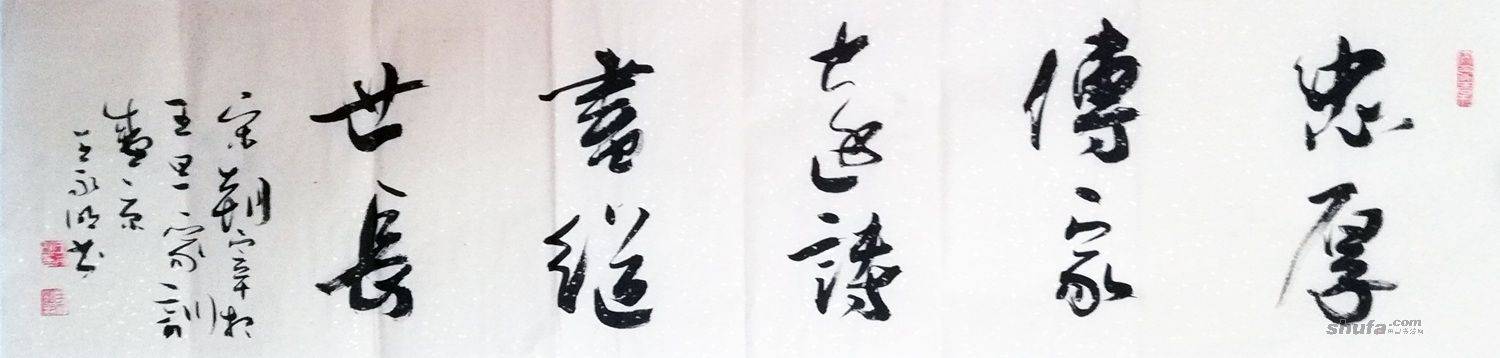 忠厚
傳家
遠詩
書繼
世長
宋朝宰相
王旦家訓
盛京
王永书
shufa.com